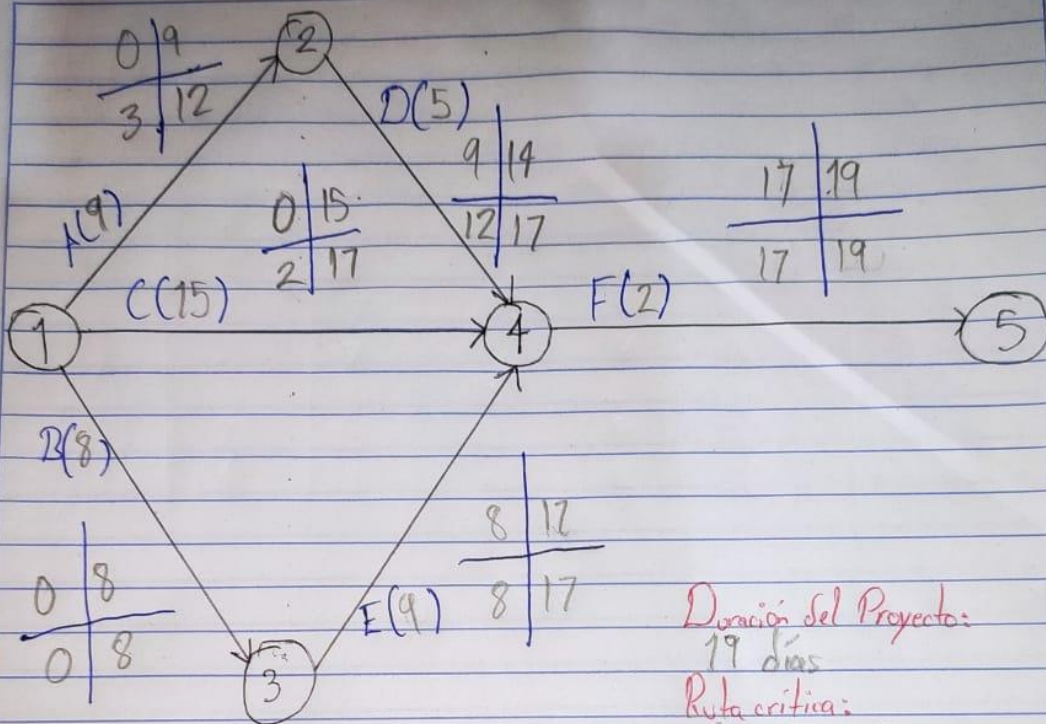 0 9
3 12
2
D(5)
9 14
12 17
17 19
17 19
A(9)
0 15
2 17
C(15)
F(2)
1
4
5
B(8)
8 17
8 17
0 8
0 8
E(9)
3
Duración del Proyecto:
19 días
Ruta crítica: